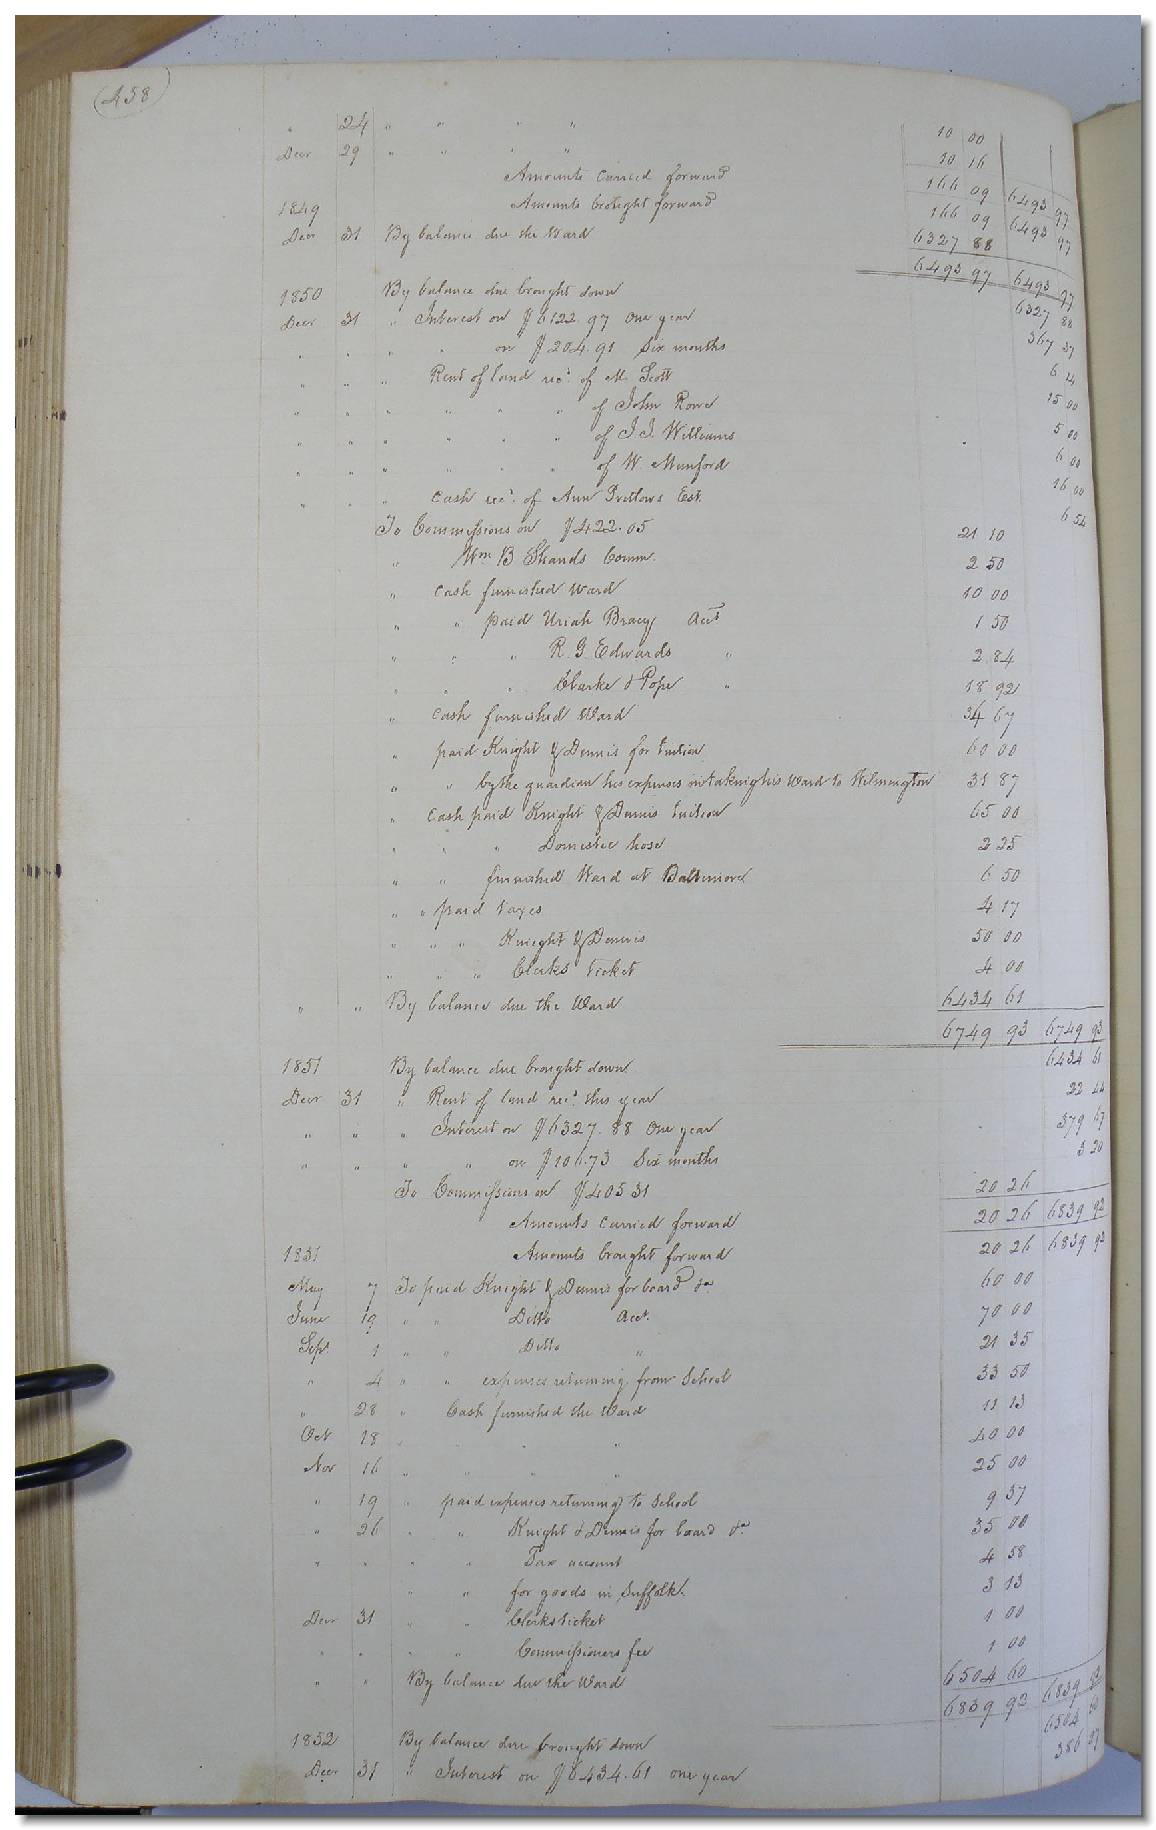 458
" 24 " " " " 10 00
Decr 29 " " " " 10 16
Amounts Carried forward 166 09 6493 97
1849 Amounts brought forward 166 09 6493 97
Decr 31 By balance due the Ward 6327 88
6493 97 6493 97
1850 By balance due brought down 6327 88
Decr 31 " Interest on $6122.97 One year 367 37
" " " " on $204.91 Six months 6 14
" " " Rent of land recd. of M. Scott 15 00
" " " " " " of John Rowe 5 00
" " " " " " of J. J. Williams 6 00
" " " " " " of W. Munford 16 00
" " " Cash recd. of Ann Pretlows Est. 6 54
To Commissions on $422.05 21 10
" Wm B Shands Comm. 2 50
" Cash furnished Ward 10 00
" " paid Uriah Bracy Acct 1 50
" " " R. G. Edwards " 2 84
" " " Clarke & Pope " 18 92
" Cash furnished Ward 34 67
" paid Knight & Dennis for tuition 60 00
" " by the guardian his expenses in taking his Ward to Wilmington 31 87
" Cash paid Knight & Dennis tuition 65 00
" " " Domestic hose 2 25
" " furnished Ward at Baltimore 6 50
" " paid taxes 4 17
" " " Knight & Dennis 50 00
" " " Clerks ticket 4 00
" " By balance due the Ward 6434 61
6749 93 6749 93
1851 By balance due brought down 6434 61
Decr 31 " Rent of land recd. this year 22 44
" " " Interest on $6327.88 One year 379 67
" " " " on $106.73 Six months 3 20
To Commissions on $405 31 20 26
Amounts Carried forward 20 26 6839 92
1851 Amounts brought forward 20 26 6839 92
May 7 To paid Knight & Dennis for board &c 60 00
June 19 " " Ditto Acct. 70 00
Sept 1 " " Ditto " 21 35
" 4 " " expenses returning from School 33 50
" 28 " Cash furnished the Ward 11 13
Oct 18 " " " " 40 00
Nov 16 " " " " 25 00
" 19 " paid expenses returning to School 9 37
" 26 " " Knight & Dennis for board &c 35 00
" " " " Tax account 4 58
" " for goods in Suffolk. 3 13
Decr 31 " " Clerks ticket 1 00
" " " " Commissioners fee 1 00
" " By balance due the Ward 6504 60
6839 92 6839 92
1852 By balance due brought down 6504 60
Decr 31 " Interest on $6434.61 one year 386 07